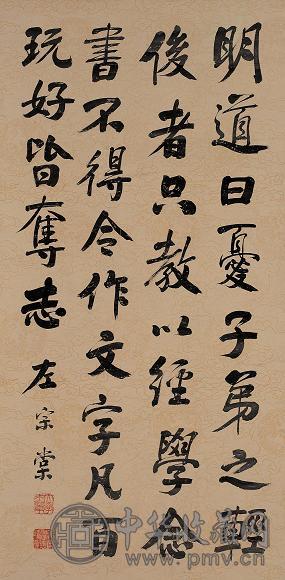 明道曰憂子弟之輕
俊者只教以經學念
書不得令作文字凡百
玩好皆奪志
左宗棠
中华收藏网
www.pmv.cn